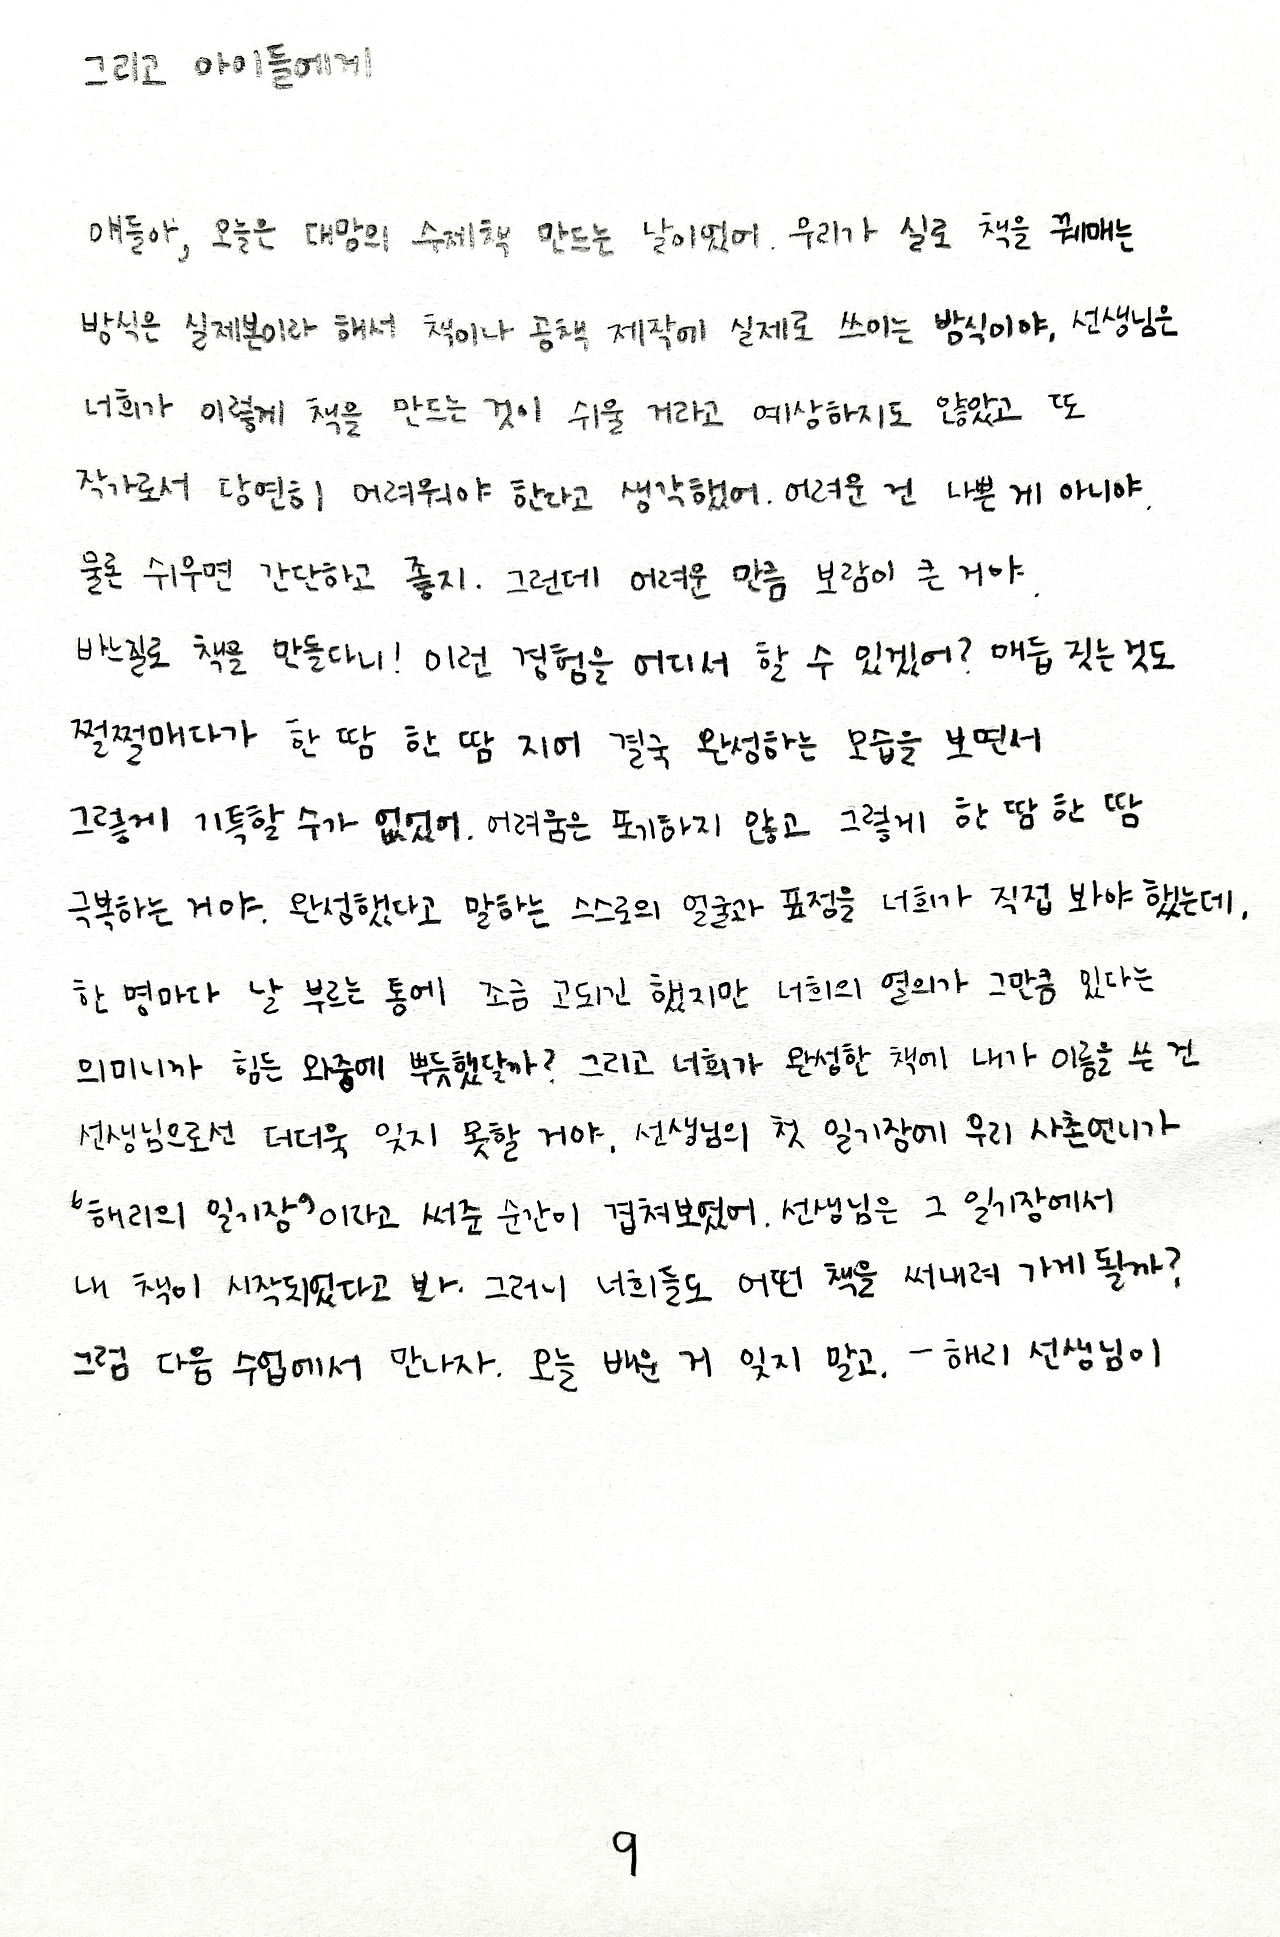 그리고 아이들에게
얘들아, 오늘은 대망의 수제책 만드는 날이었어. 우리가 실로 책을 꿰매는
방식은 실제본이라 해서 책이나 공책 제작에 실제로 쓰이는 방식이야. 선생님은
너희가 이렇게 책을 만드는 것이 쉬울 거라고 예상하지도 않았고 또
작가로서 당연히 어려워야 한다고 생각했어. 어려운 건 나쁜 게 아니야.
물론 쉬우면 간단하고 좋지. 그런데 어려운 만큼 보람이 큰 거야.
바느질로 책을 만들다니! 이런 경험을 어디서 할 수 있겠어? 매듭 짓는 것도
쩔쩔매다가 한 땀 한 땀 지어 결국 완성하는 모습을 보면서
그렇게 기특할 수가 없었어. 어려움은 포기하지 않고 그렇게 한 땀 한 땀
극복하는 거야. 완성했다고 말하는 스스로의 얼굴과 표정을 너희가 직접 봐야 했는데.
한 명마다 날 부르는 통에 조금 고되긴 했지만 너희의 열의가 그만큼 있다는
의미니까 힘든 와중에 뿌듯했달까? 그리고 너희가 완성한 책에 내가 이름을 쓴 건
선생님으로선 더더욱 잊지 못할 거야. 선생님의 첫 일기장에 우리 사촌언니가
'해리의 일기장'이라고 써준 순간이 겹쳐보였어. 선생님은 그 일기장에서
내 책이 시작되었다고 봐. 그러니 너희들도 어떤 책을 써내려 가게 될까?
그럼 다음 수업에서 만나자. 오늘 배운 거 잊지 말고. - 해리 선생님이
9